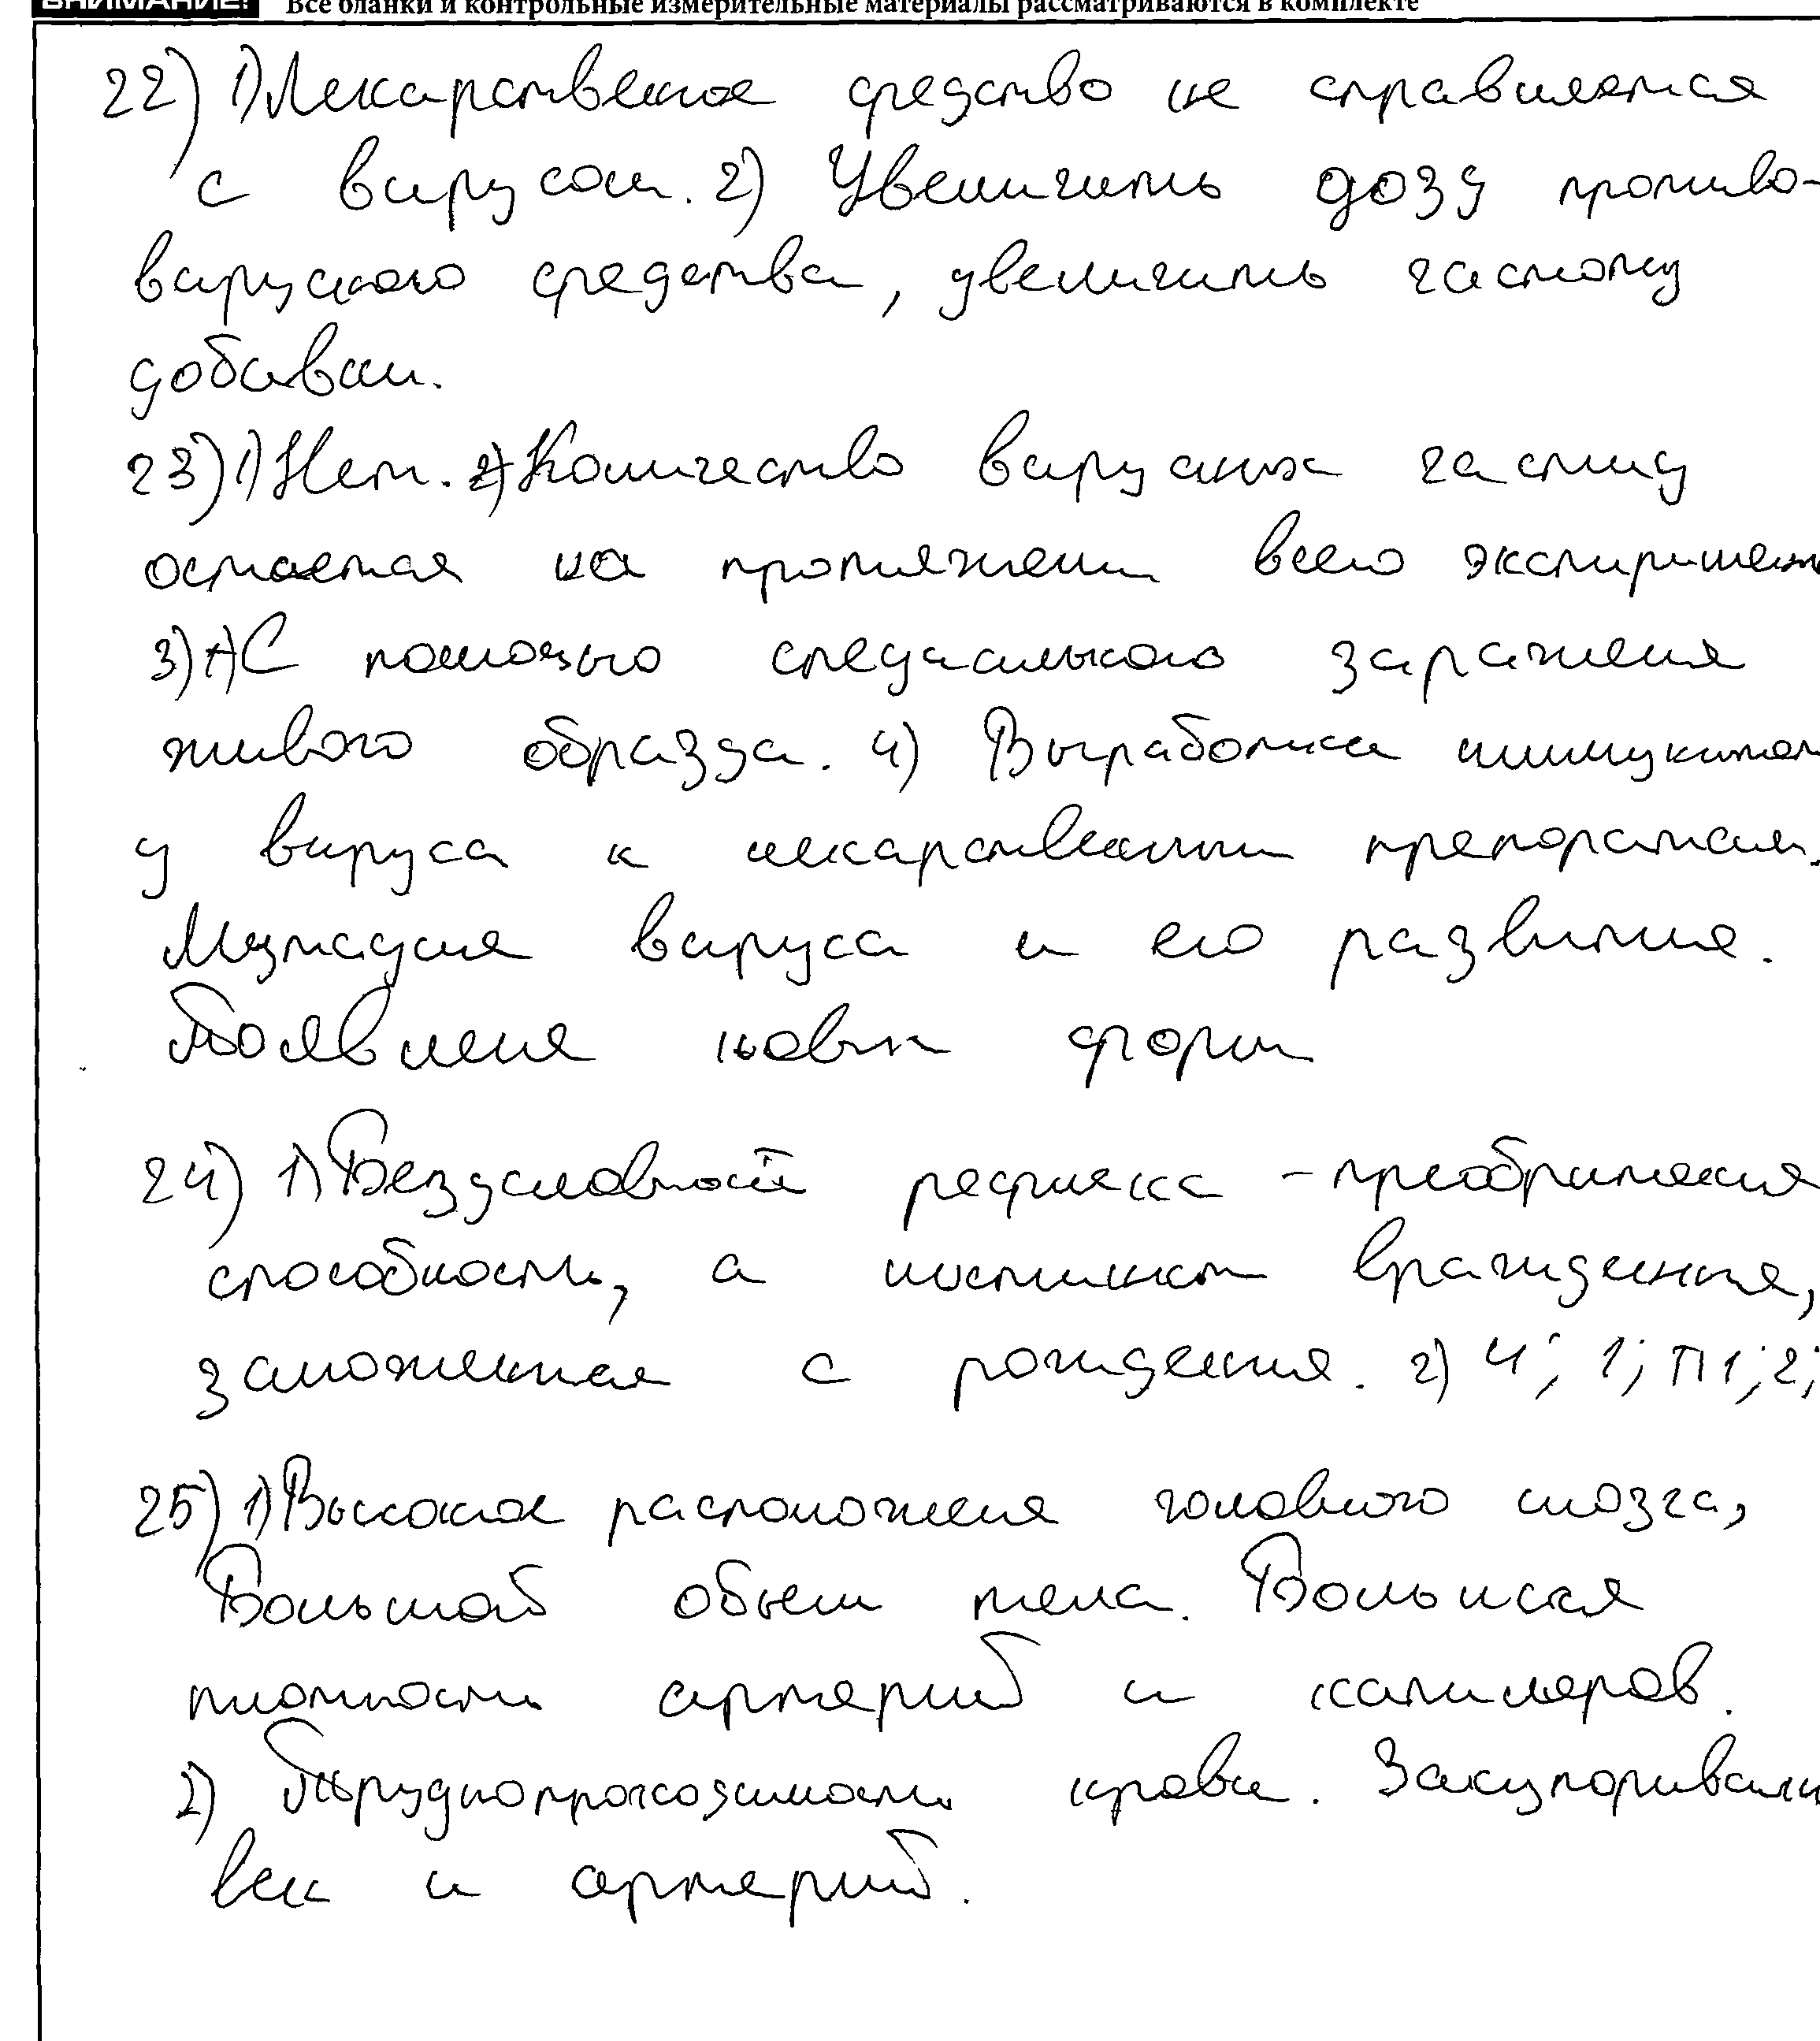 ВНИМАНИЕ! Все бланки и контрольные измерительные материалы рассматриваются в комплекте
22) 1) Лекарственое средство не справляется
с вирусом. 2) Увеличить дозу противо-
вирусного средства, увеличить частоту
добавки.
23) 1) Нет. 2) Количество вирусных частиц
остается на протяжении всего экспиримент
3) С помощью специального заражения
живого образца. 4) Выработка иммунитет
у вируса к лекарственным препоратам.
Мутация вируса и его развитие.
Появления новых форм
24) 1) Безусловный рефлекс - преобритеная
способность, а инстинкт вражденная,
заложенная с рождения. 2) 4; 1; П1; 2;
25) 1) Высокое расположения головного мозга,
Большой объем тела. Большая
плотность артерий и капиляров.
2) Труднопроходимость крови. Закупоривани
вен и артерий.